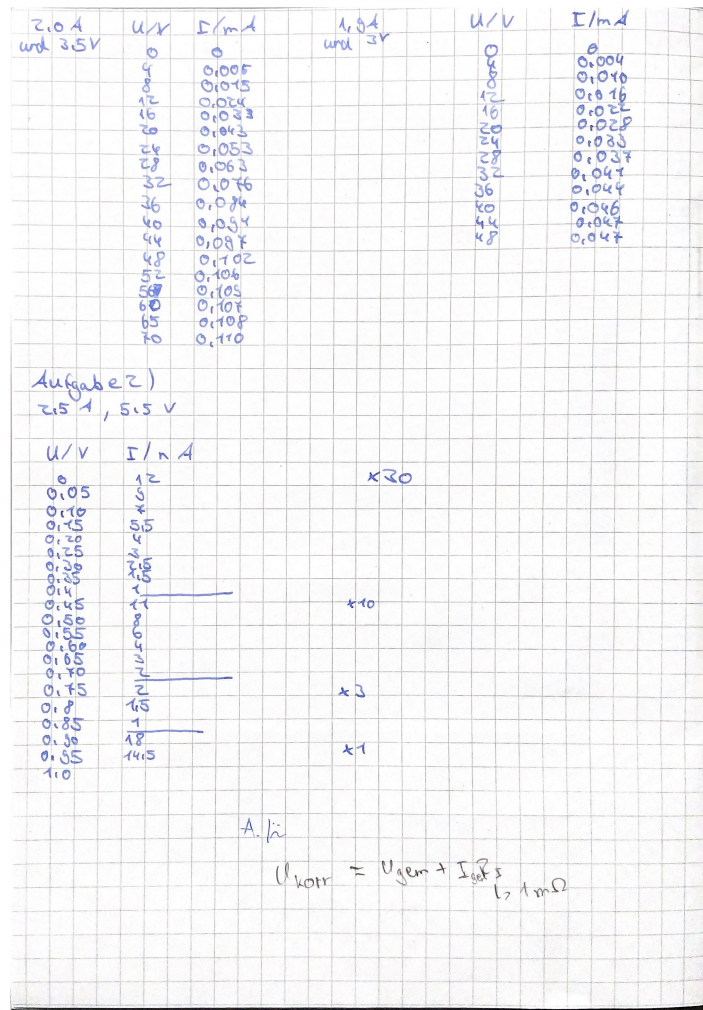 2,0 A U/V I/mA
und 3,5V
0 0
4 0,005
8 0,015
12 0,024
16 0,033
20 0,043
24 0,053
28 0,063
32 0,076
36 0,084
40 0,091
44 0,097
48 0,102
52 0,106
56 0,105
60 0,107
65 0,108
70 0,110
1,9A U/V I/mA
und 3V
0 0
4 0,004
8 0,010
12 0,016
16 0,022
20 0,028
24 0,033
28 0,037
32 0,041
36 0,044
40 0,046
44 0,047
48 0,047
Aufgabe 2)
2,5 A, 5,5 V
U/V I/nA
0 12 x30
0,05 9
0,10 7
0,15 5,5
0,20 4
0,25 3
0,30 2,5
0,35 1,5
0,4 1
0,45 11 x10
0,50 8
0,55 6
0,60
0,65 3
0,70 2
0,75 2 x3
0,8 1,5
0,85 1
0,90 18
0,95 14,5 x1
1,0
U korr = U gem + I gem R I
↳ 1 mΩ